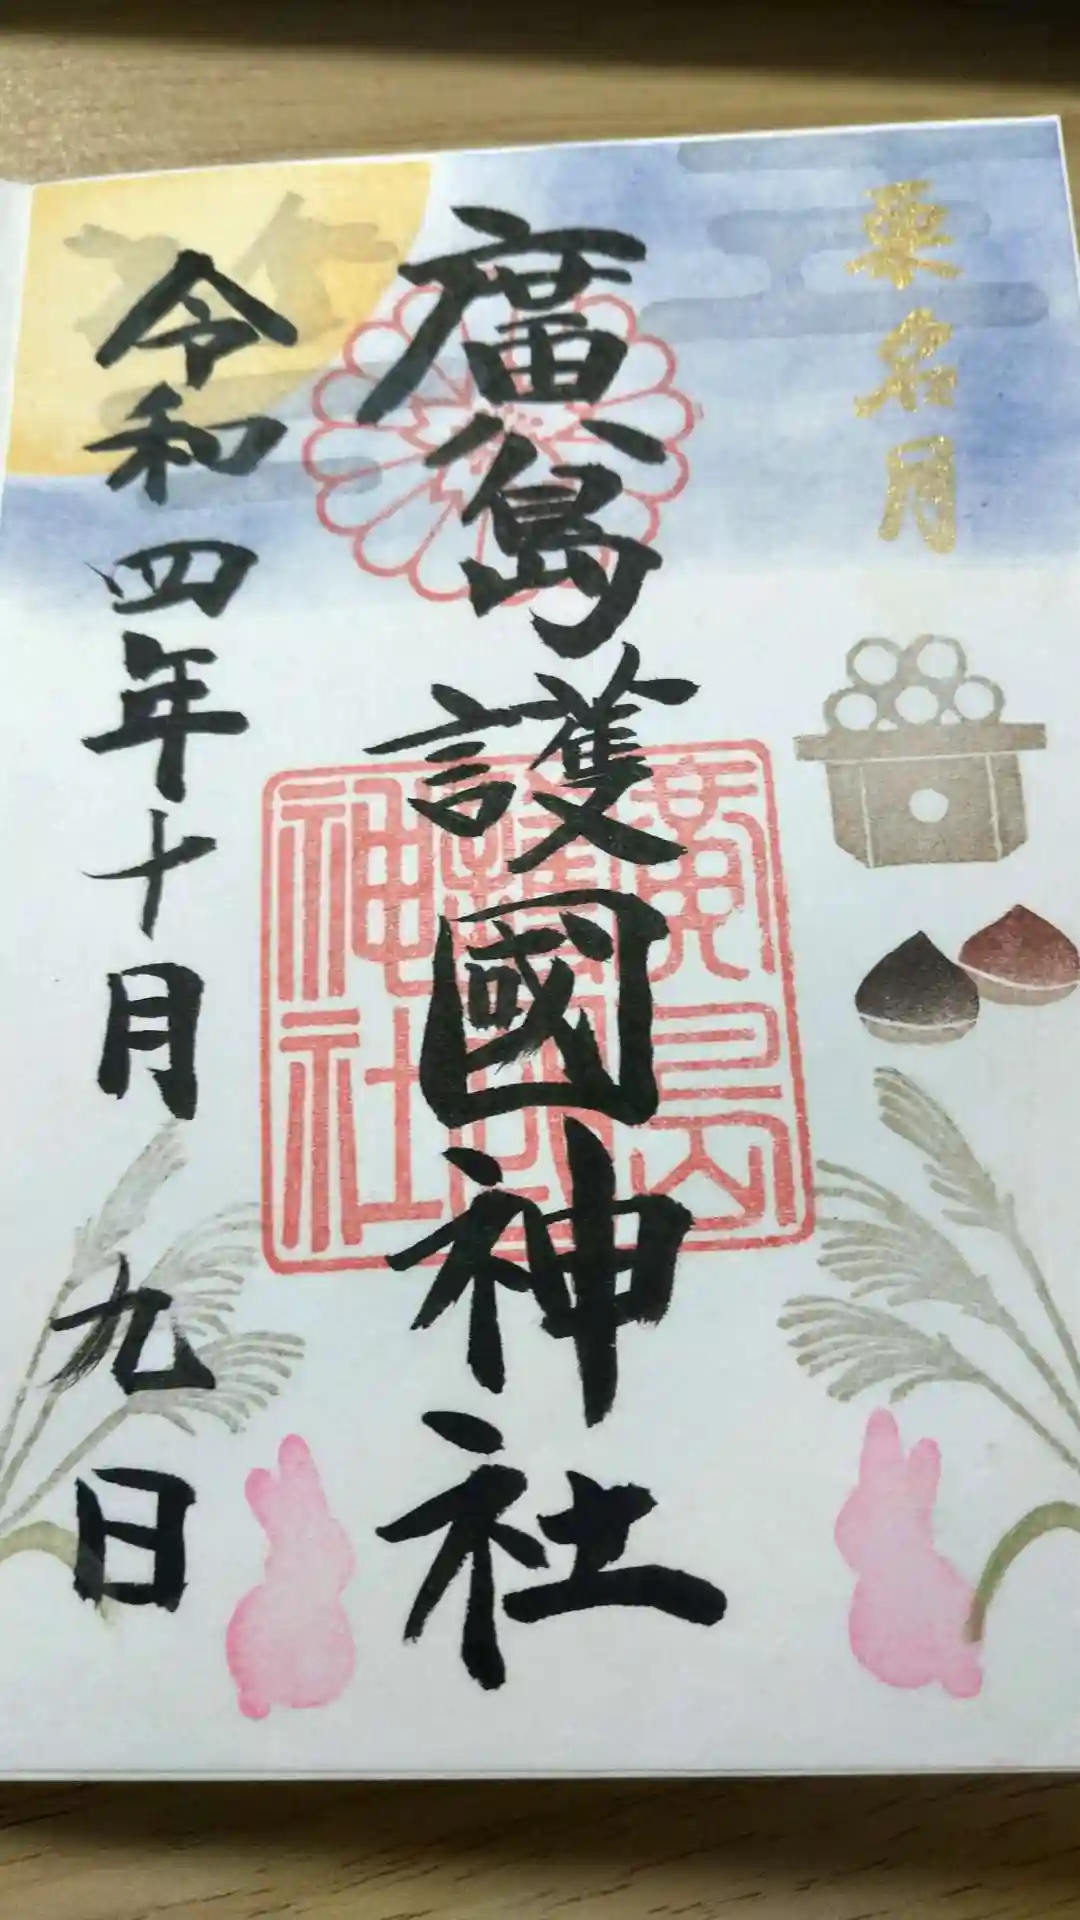 栗名月
廣島護國神社
令和四年十月九日
廣島
護國
神社